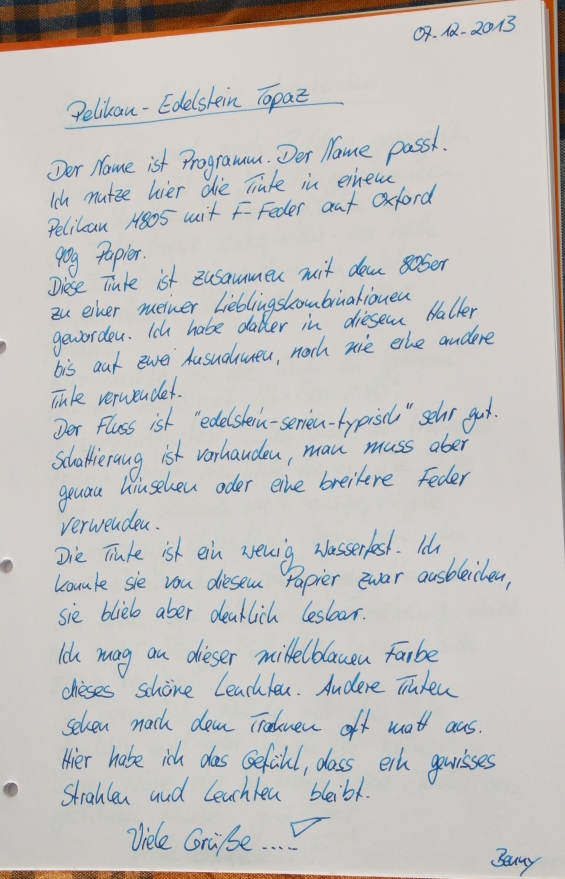 07-12-2013
Pelikan - Edelstein Topaz
Der Name ist Programm. Der Name passt.
Ich nutze hier die Tinte in einem
Pelikan M805 mit F-Feder auf Oxford
90g Papier.
Diese Tinte ist zusammen mit dem 805er
zu einer meiner Lieblingskombinationen
geworden. Ich habe daher in diesem Halter
bis auf zwei Ausnahmen, noch nie eine andere
Tinte verwendet.
Der Fluss ist "edelstein-serien-typisch" sehr gut.
Schattierung ist vorhanden, man muss aber
genau hinsehen oder eine breitere Feder
verwenden.
Die Tinte ist ein wenig wasserfest. Ich
konnte sie von diesem Papier zwar ausbleichen,
sie blieb aber deutlich lesbar.
Ich mag an dieser mittelblauen Farbe
dieses schöne Leuchten. Andere Tinten
sehen nach dem Trocknen oft matt aus.
Hier habe ich das Gefühl, dass ein gewisses
Strahlen und Leuchten bleibt.
Viele Grüße ....
Benny